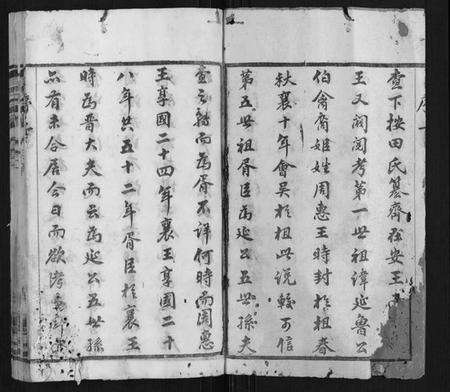 查下按田氏篡齊在安王
王又閱閱考第一世祖諱延魯公
伯禽裔姬姓周惠王時封於柤春
秋襄十年會吳於柤此說較可信
第五世祖胥臣為延公五世孫夫
查之難而為胥不詳何時而周惠
王享國二十四年襄王享國二十
八年共五十二年胥臣於襄王
時為晉大夫而云為延公五世孫
亦有未合居今日而欲